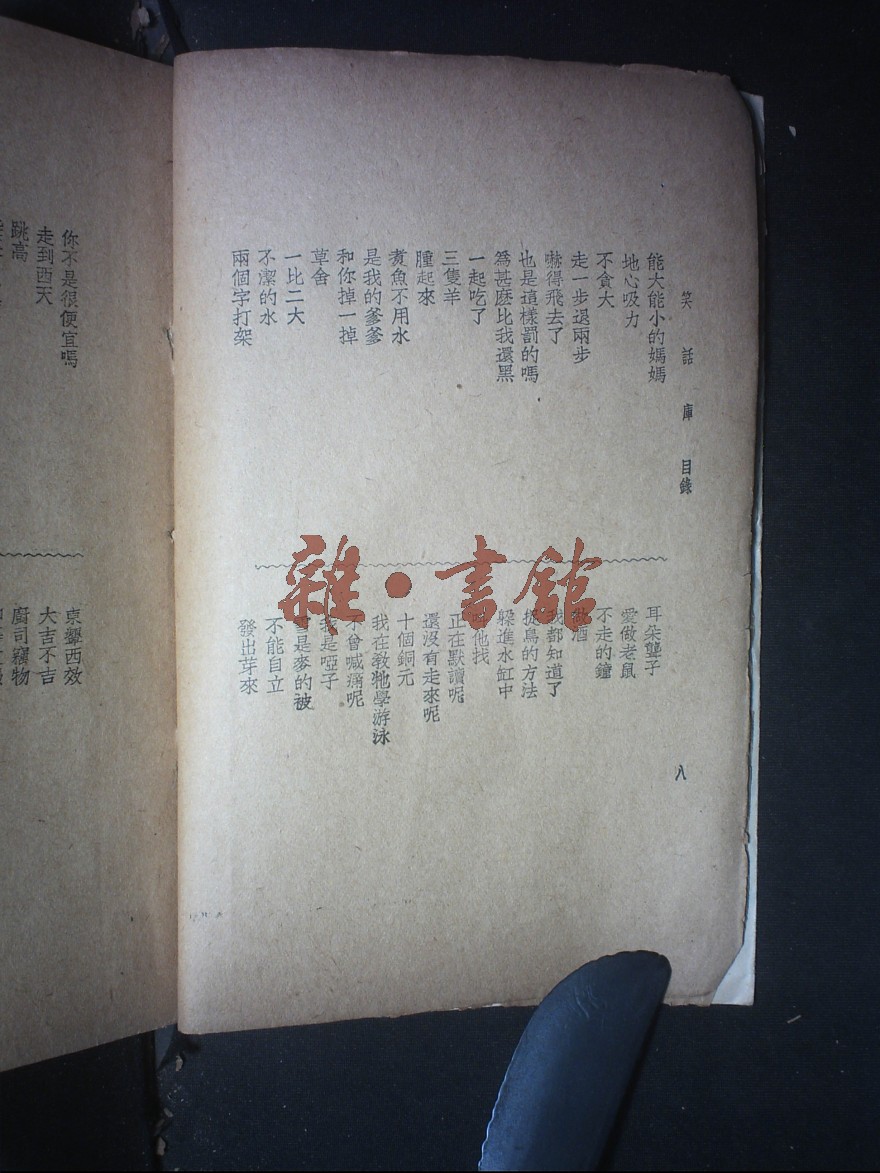 笑話庫目錄
八
能大能小的媽媽
地心吸力
不貪大
走一步退兩步
嚇得飛去了
也是這樣罰的嗎
爲甚麽比我還黑
一起吃了
三隻羊
腫起來
煑魚不用水
是我的爹爹
和你掉一掉
草舍
一比二大
不潔的水
兩個字打架
耳朶聾子
愛做老鼠
不走的鐘
酒
我都知道了
捉鳥的方法
躱進水缸中
他找
正在默讀呢
還沒有走來呢
十個銅元
我在敎牠學游泳
不曾喊痛呢
我是啞子
雪是麥的被
不能自立
發出芽來
你不是很便宜嗎
走到西天
跳高
東顰西效
大吉不吉
廚司竊物
雜·書館